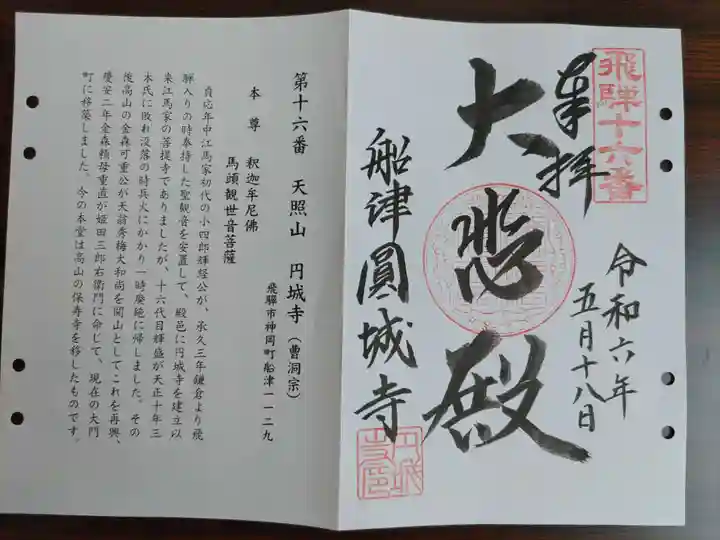 飛騨十六番
奉拝
令和六年
五月十八日
大悲殿
船津圓城寺
円城
寺印
第十六番　天照山　円城寺（曹洞宗）
飛騨市神岡町船津一一二九
本尊　釈迦牟尼佛
馬頭観世音菩薩
貞応年中江馬家初代の小四郎輝経公が、承久三年鎌倉より飛
騨入りの時奉持した聖観音を安置して、殿邑に円城寺を建立以
来江馬家の菩提寺でありましたが、十六代目輝盛が天正十年三
木氏に敗れ没落の時兵火にかかり一時廃絶に帰しました。その
後高山の金森可重公が天翁秀梅大和尚を開山としてこれを再興、
慶安二年金森頼母重直が姫田三郎右衛門に命じて、現在の大門
町に移築しました。今の本堂は高山の保寿寺を移したものです。